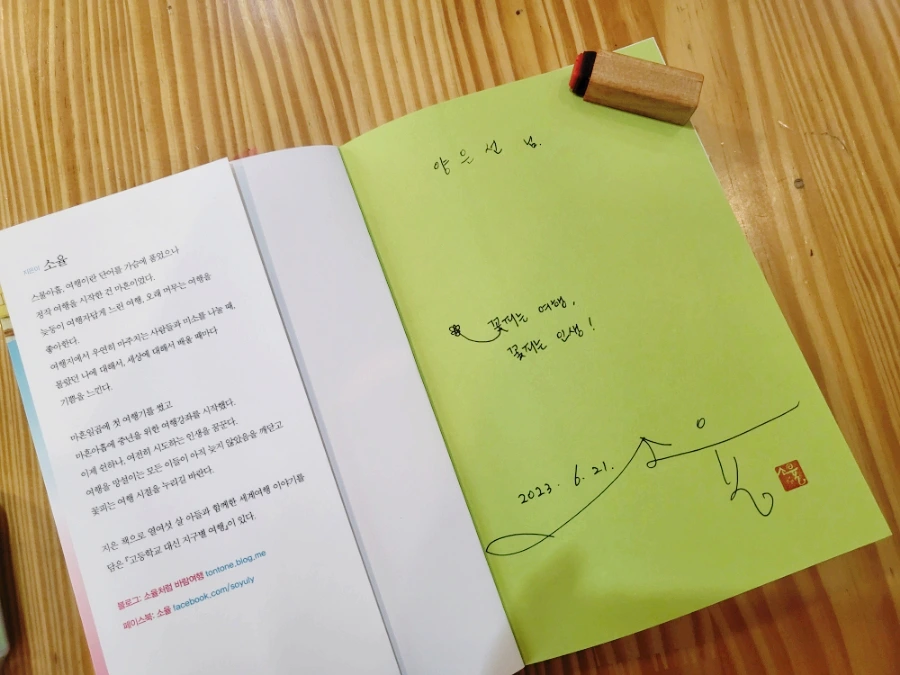 지은이 소율
스물아홉, 여행이란 단어를 가슴에 품었으나
정작 여행을 시작한 건 마흔이었다.
늦둥이 여행자답게 느린 여행, 오래 머무는 여행을
좋아한다.
여행지에서 우연히 마주치는 사람들과 미소를 나눌 때,
몰랐던 나에 대해서, 세상에 대해서 배울 때마다
기쁨을 느낀다.
마흔일곱에 첫 여행기를 썼고
마흔아홉에 중년을 위한 여행강좌를 시작했다.
이제 쉰하나, 여전히 시도하는 인생을 꿈꾼다.
여행을 망설이는 모든 이들이 아직 늦지 않았음을 깨닫고
꽃피는 여행 시절을 누리길 바란다.
지은 책으로 열여섯 살 아들과 함께한 세계여행 이야기를
담은 『고등학교 대신 지구별 여행』이 있다.
블로그: 소율처럼 바람여행 tontone.blog.me
페이스북: 소율 facebook.com/soyuly
양은선 님.
꽃피는 여행,
꽃피는 인생!
2023. 6. 21.
소율
소율